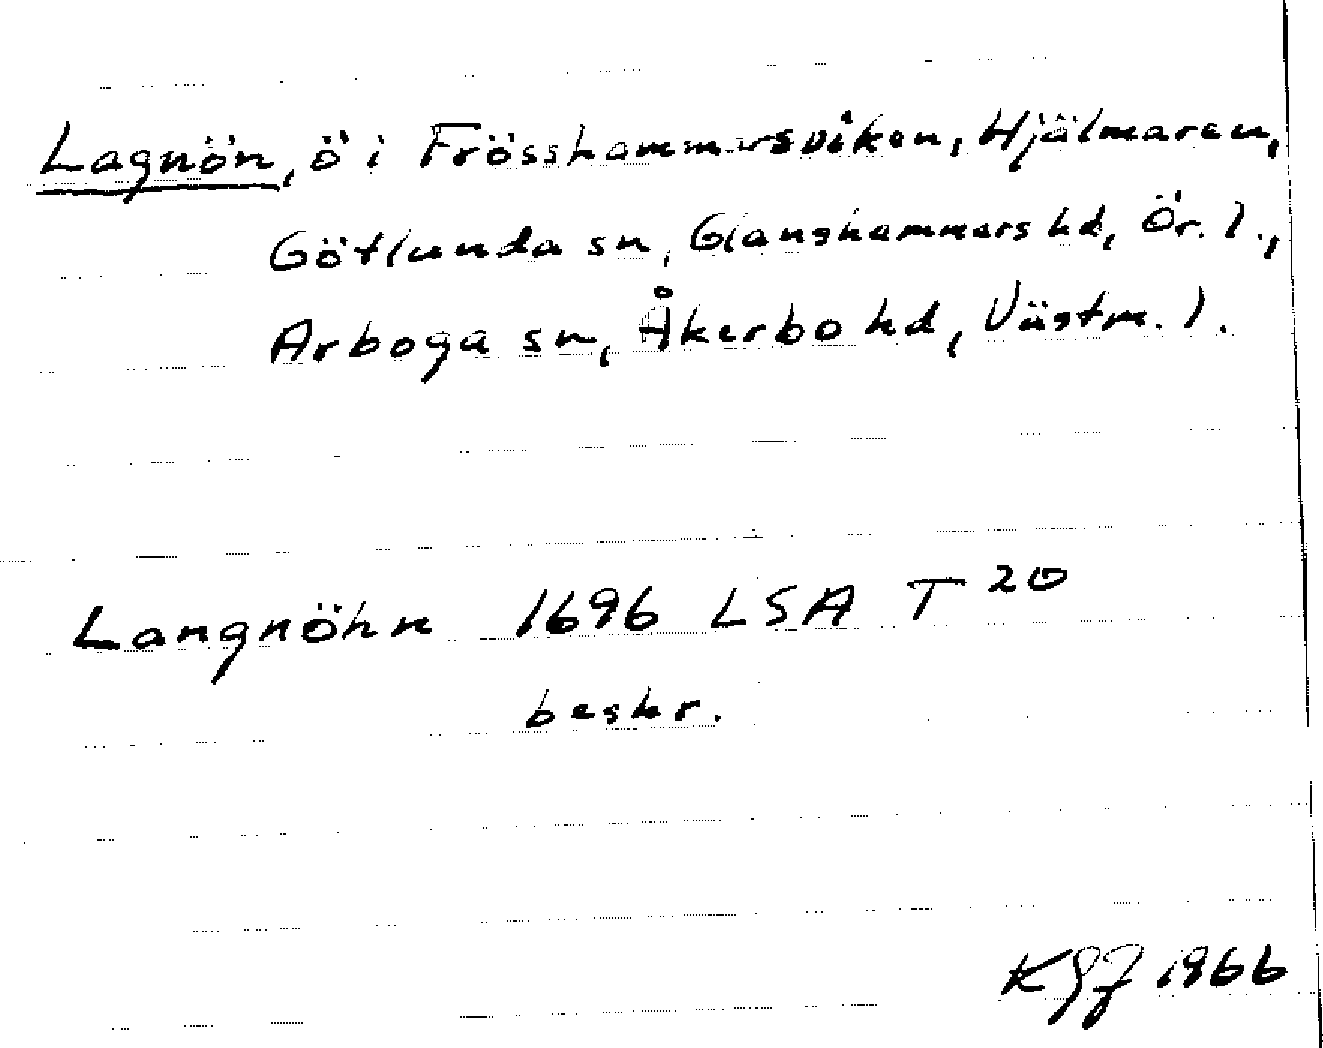 Lagnön, ö i Frösshammarsviken, Hjälmaren,
Götlunda sn, Glanshammars hd, Ör. l.,
Arboga sn, Åkerbo hd, Västm. l.
Langnöhn 1696 LSA T 20
beskr.
KGJ 1966